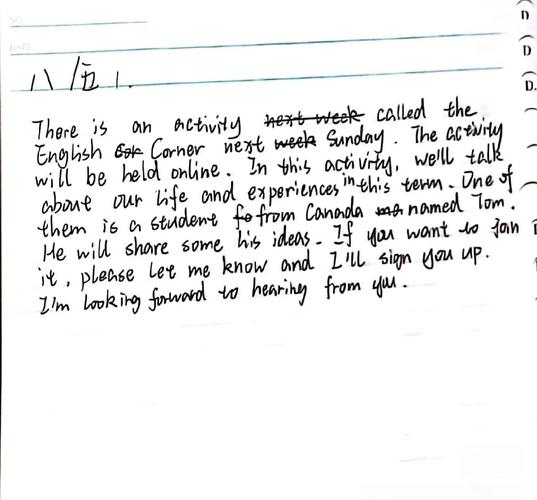 NO.
DATE
八/五 1.
There is an activity next week called the
English Cor Corner next week Sunday. The activity
will be held online. In this activity, we'll talk
about our life and experiences in this term. One of
them is a student fo from Canada named Tom.
He will share some his ideas. If you want to join
it, please let me know and I'll sign you up.
I'm looking forward to hearing from you.
D
D
D.